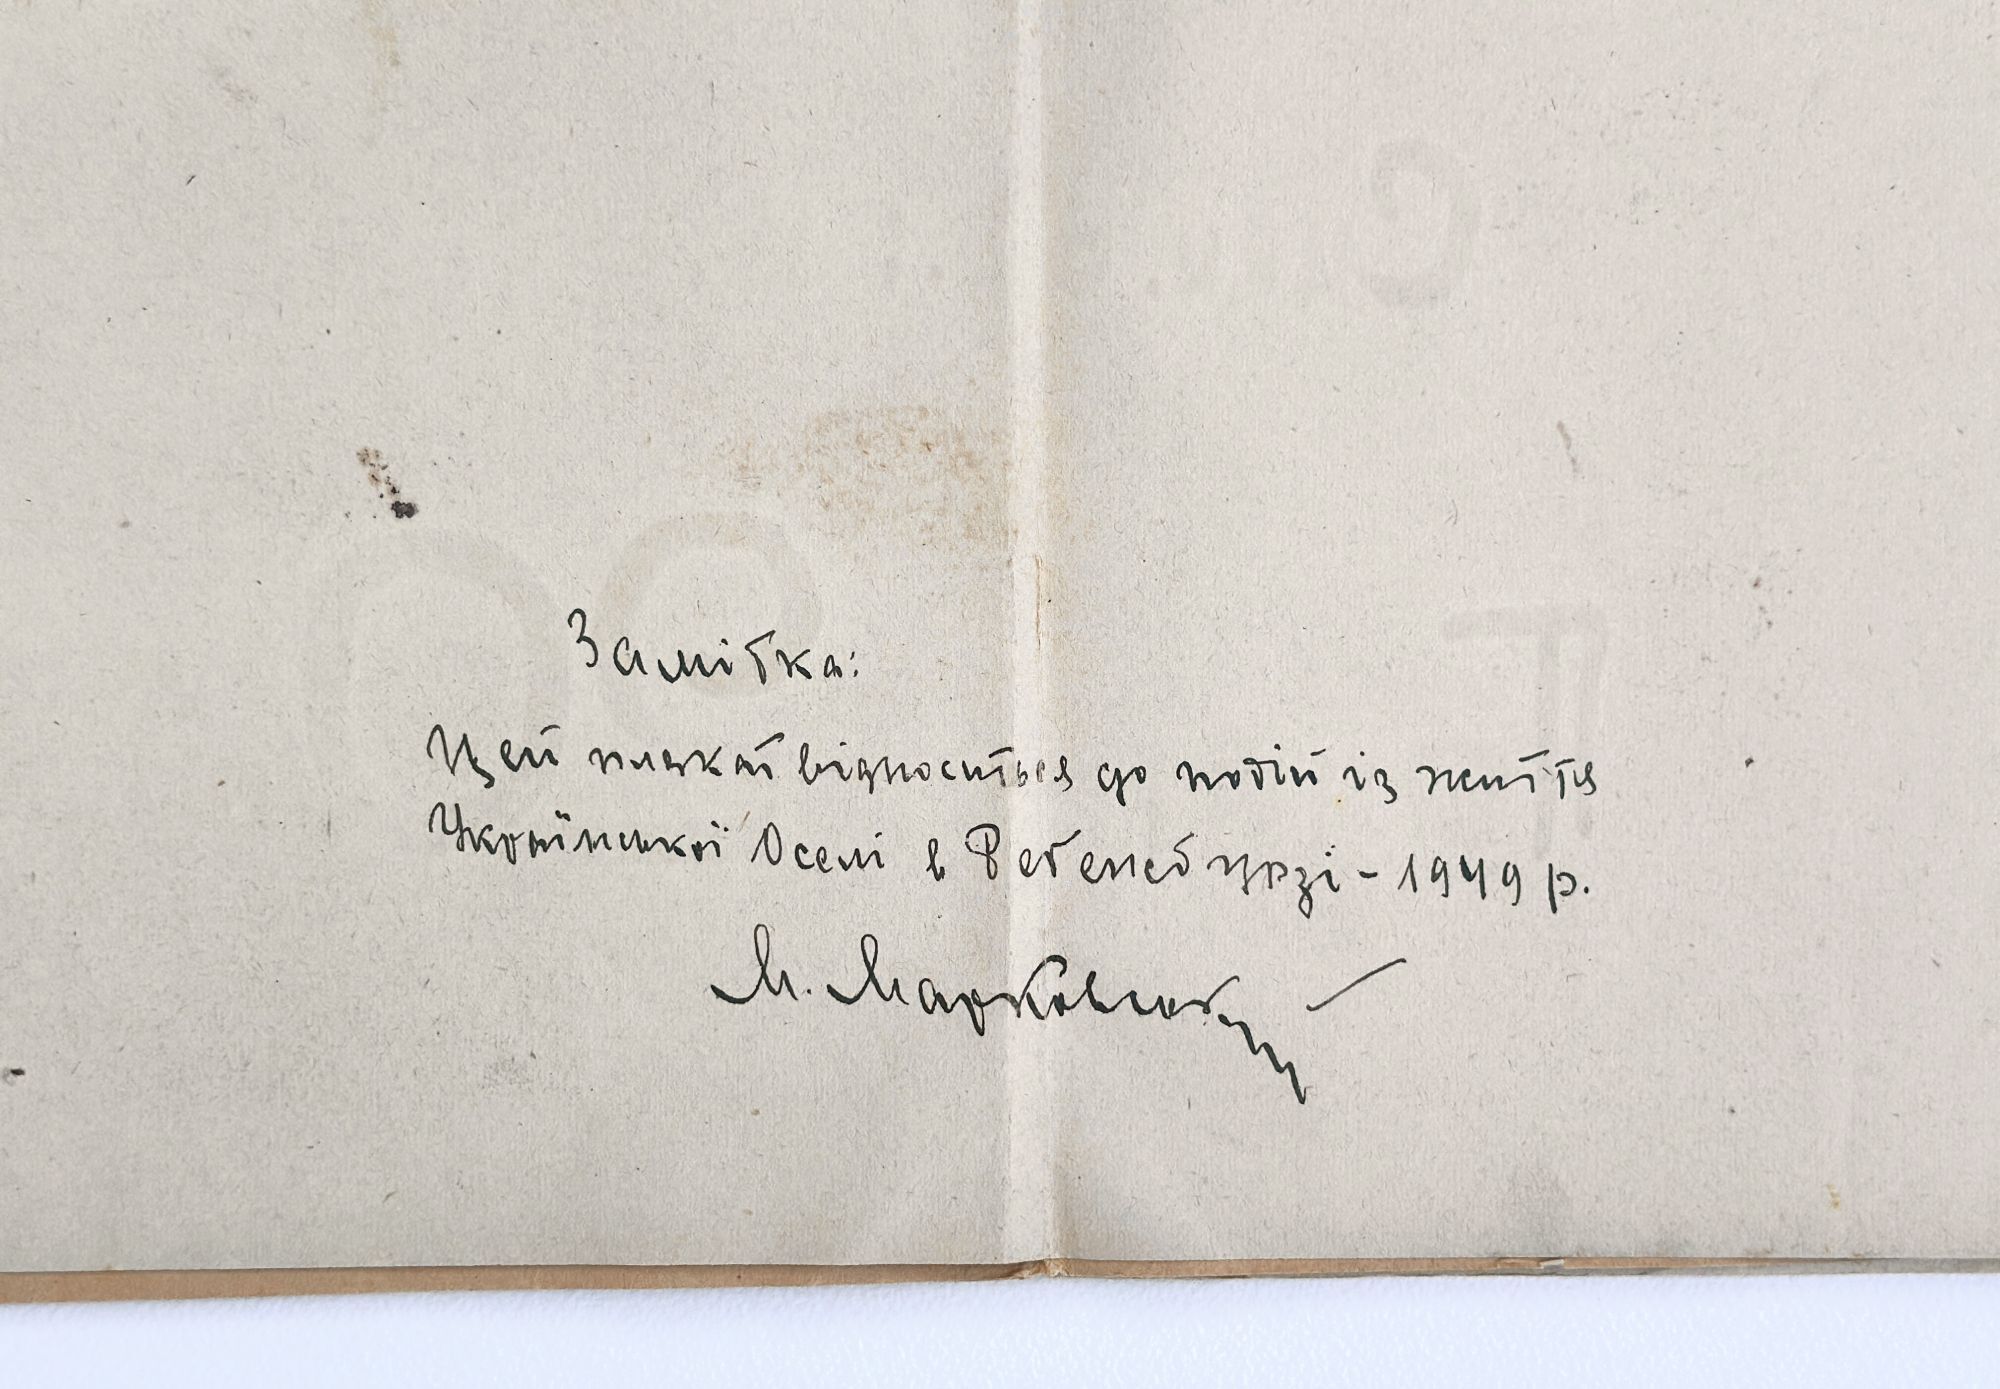 Замітка:
Цей плякат відноситься до подій із життя
Української Оселі в Регенсбурзі - 1949 р.
М. Марковський